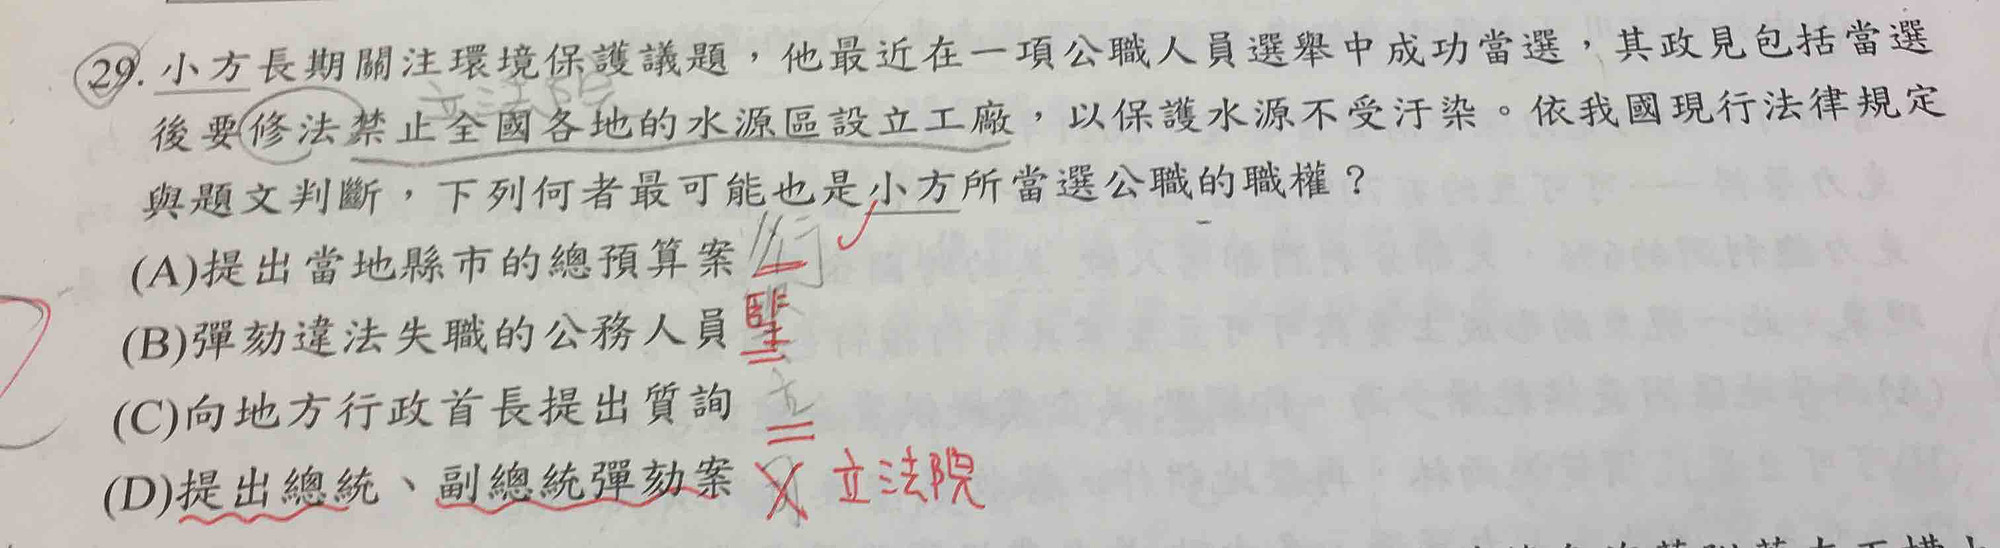 29.小方長期關注環境保護議題，他最近在一項公職人員選舉中成功當選，其政見包括當選
立法院
後要修法禁止全國各地的水源區設立工廠，以保護水源不受汙染。依我國現行法律規定
與題文判斷，下列何者最可能也是小方所當選公職的職權？
(A)提出當地縣市的總預算案 行
(B)彈劾違法失職的公務人員 監
(C)向地方行政首長提出質詢 立
(D)提出總統、副總統彈劾案 立法院